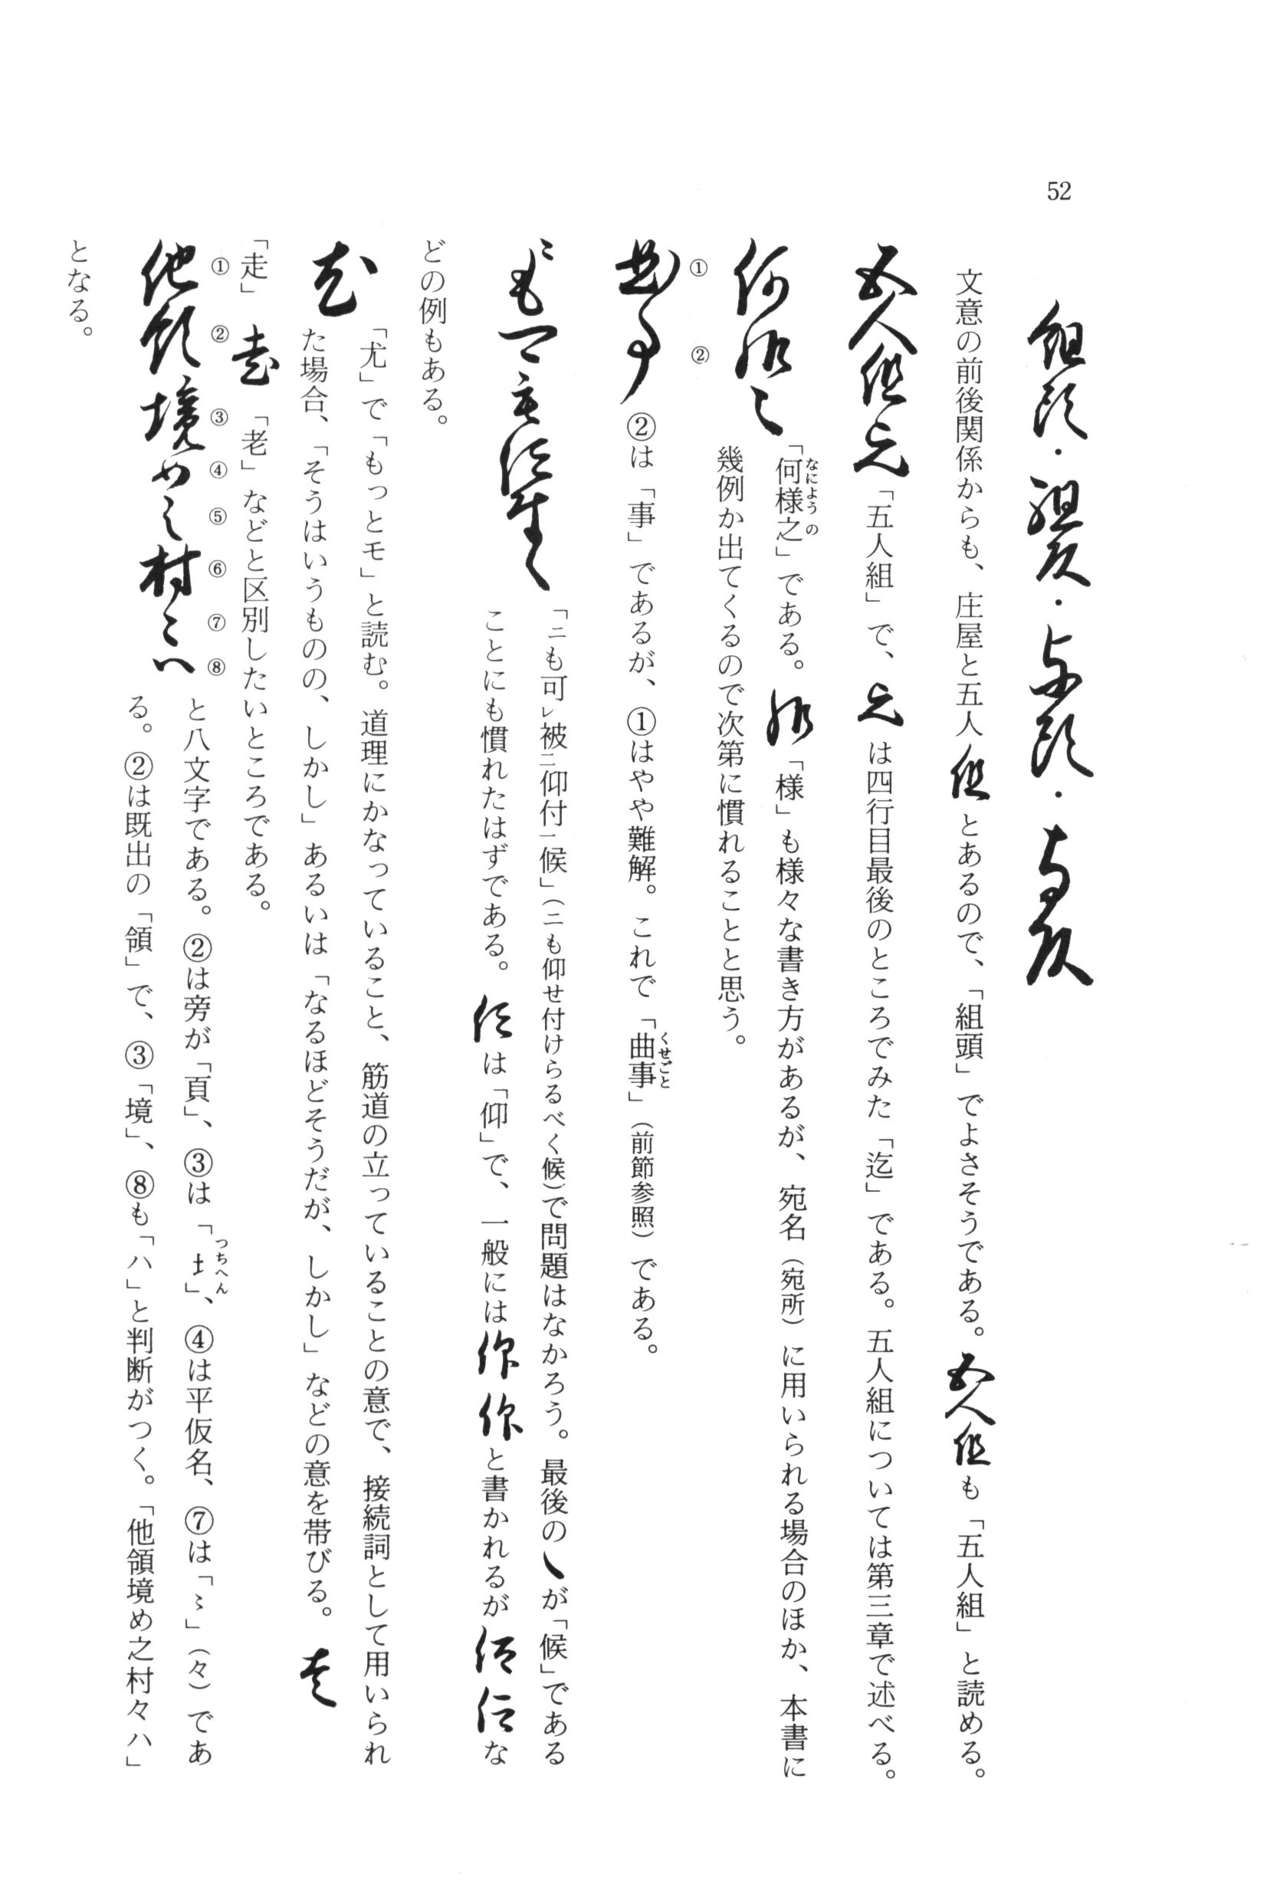 52
組頭・組頭・与頭・与頭
文意の前後関係からも、庄屋と五人組とあるので、「組頭」でよさそうである。五人組も「五人組」と読める。
五人組迄「五人組」で、迄は四行目最後のところでみた「迄」である。五人組については第三章で述べる。
何様之「何様之なにようの」である。様「様」も様々な書き方があるが、宛名（宛所）に用いられる場合のほか、本書に
幾例か出てくるので次第に慣れることと思う。
①②
曲事②は「事」であるが、①はやや難解。これで「曲事くせごと」（前節参照）である。
ニも可被仰付候「ニも可㆑被㆓仰付㆒候」（ニも仰せ付けらるべく候）で問題はなかろう。最後の候が「候」である
ことにも慣れたはずである。仰は「仰」で、一般には仰仰と書かれるが仰仰な
どの例もある。
尤「尤」で「もっとモ」と読む。道理にかなっていること、筋道の立っていることの意で、接続詞として用いられ
た場合、「そうはいうものの、しかし」あるいは「なるほどそうだが、しかし」などの意を帯びる。走
「走」老「老」などと区別したいところである。
①②③④⑤⑥⑦⑧
他領境め之村々ハと八文字である。②は旁が「頁」、③は「土つちへん」、④は平仮名、⑦は「〻」（々）であ
る。②は既出の「領」で、③「境」、⑧も「ハ」と判断がつく。「他領境め之村々ハ」
となる。